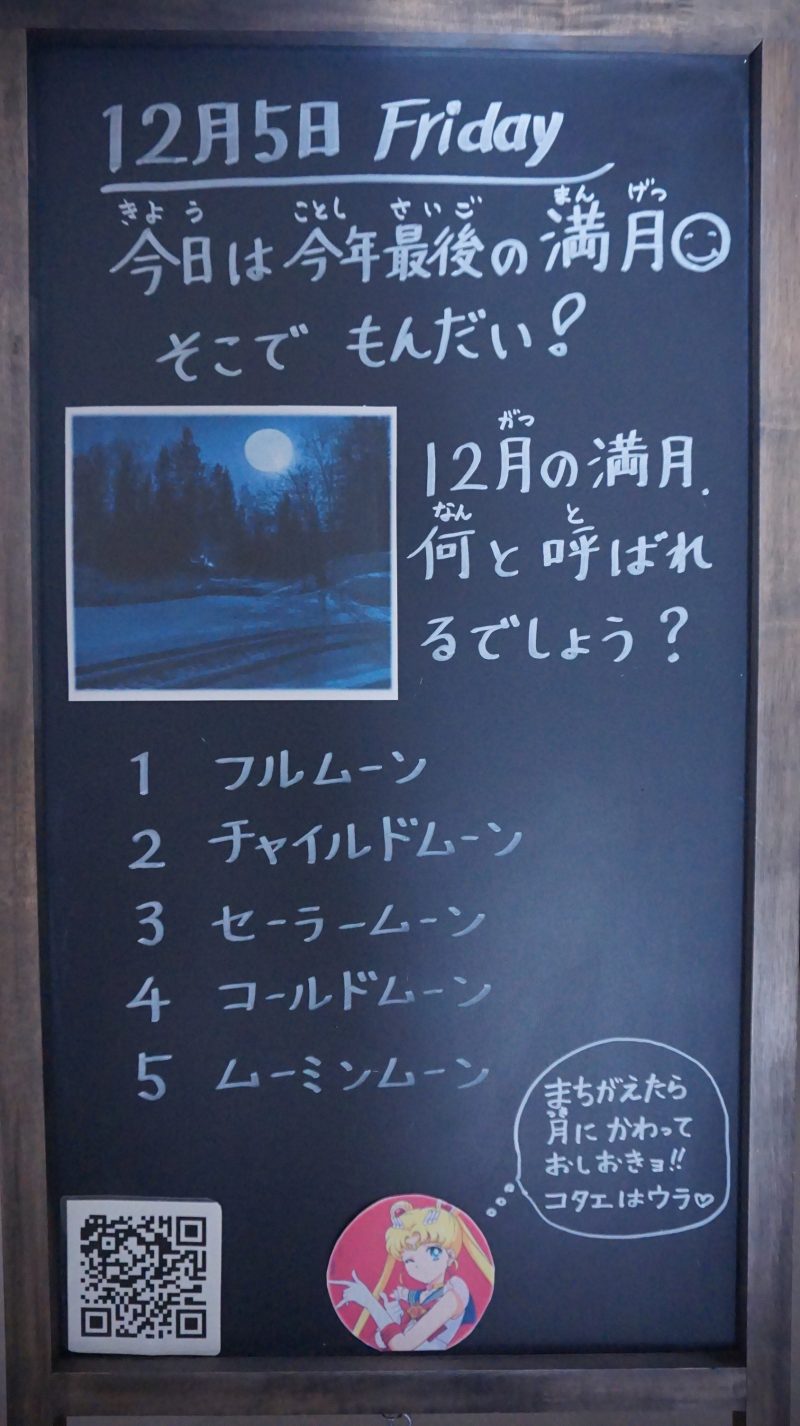 12月5日 Friday
きょう ことし さいご まん げつ
今日は今年最後の満月
そこで もんだい!
がつ
12月の満月.
なん と
何と呼ばれ
るでしょう?
1 フルムーン
2 チャイルドムーン
3 セーラームーン
4 コールドムーン
5 ムーミンムーン
まちがえたら
つき
月にかわって
おしおきョ!!
コタエはウラ♡